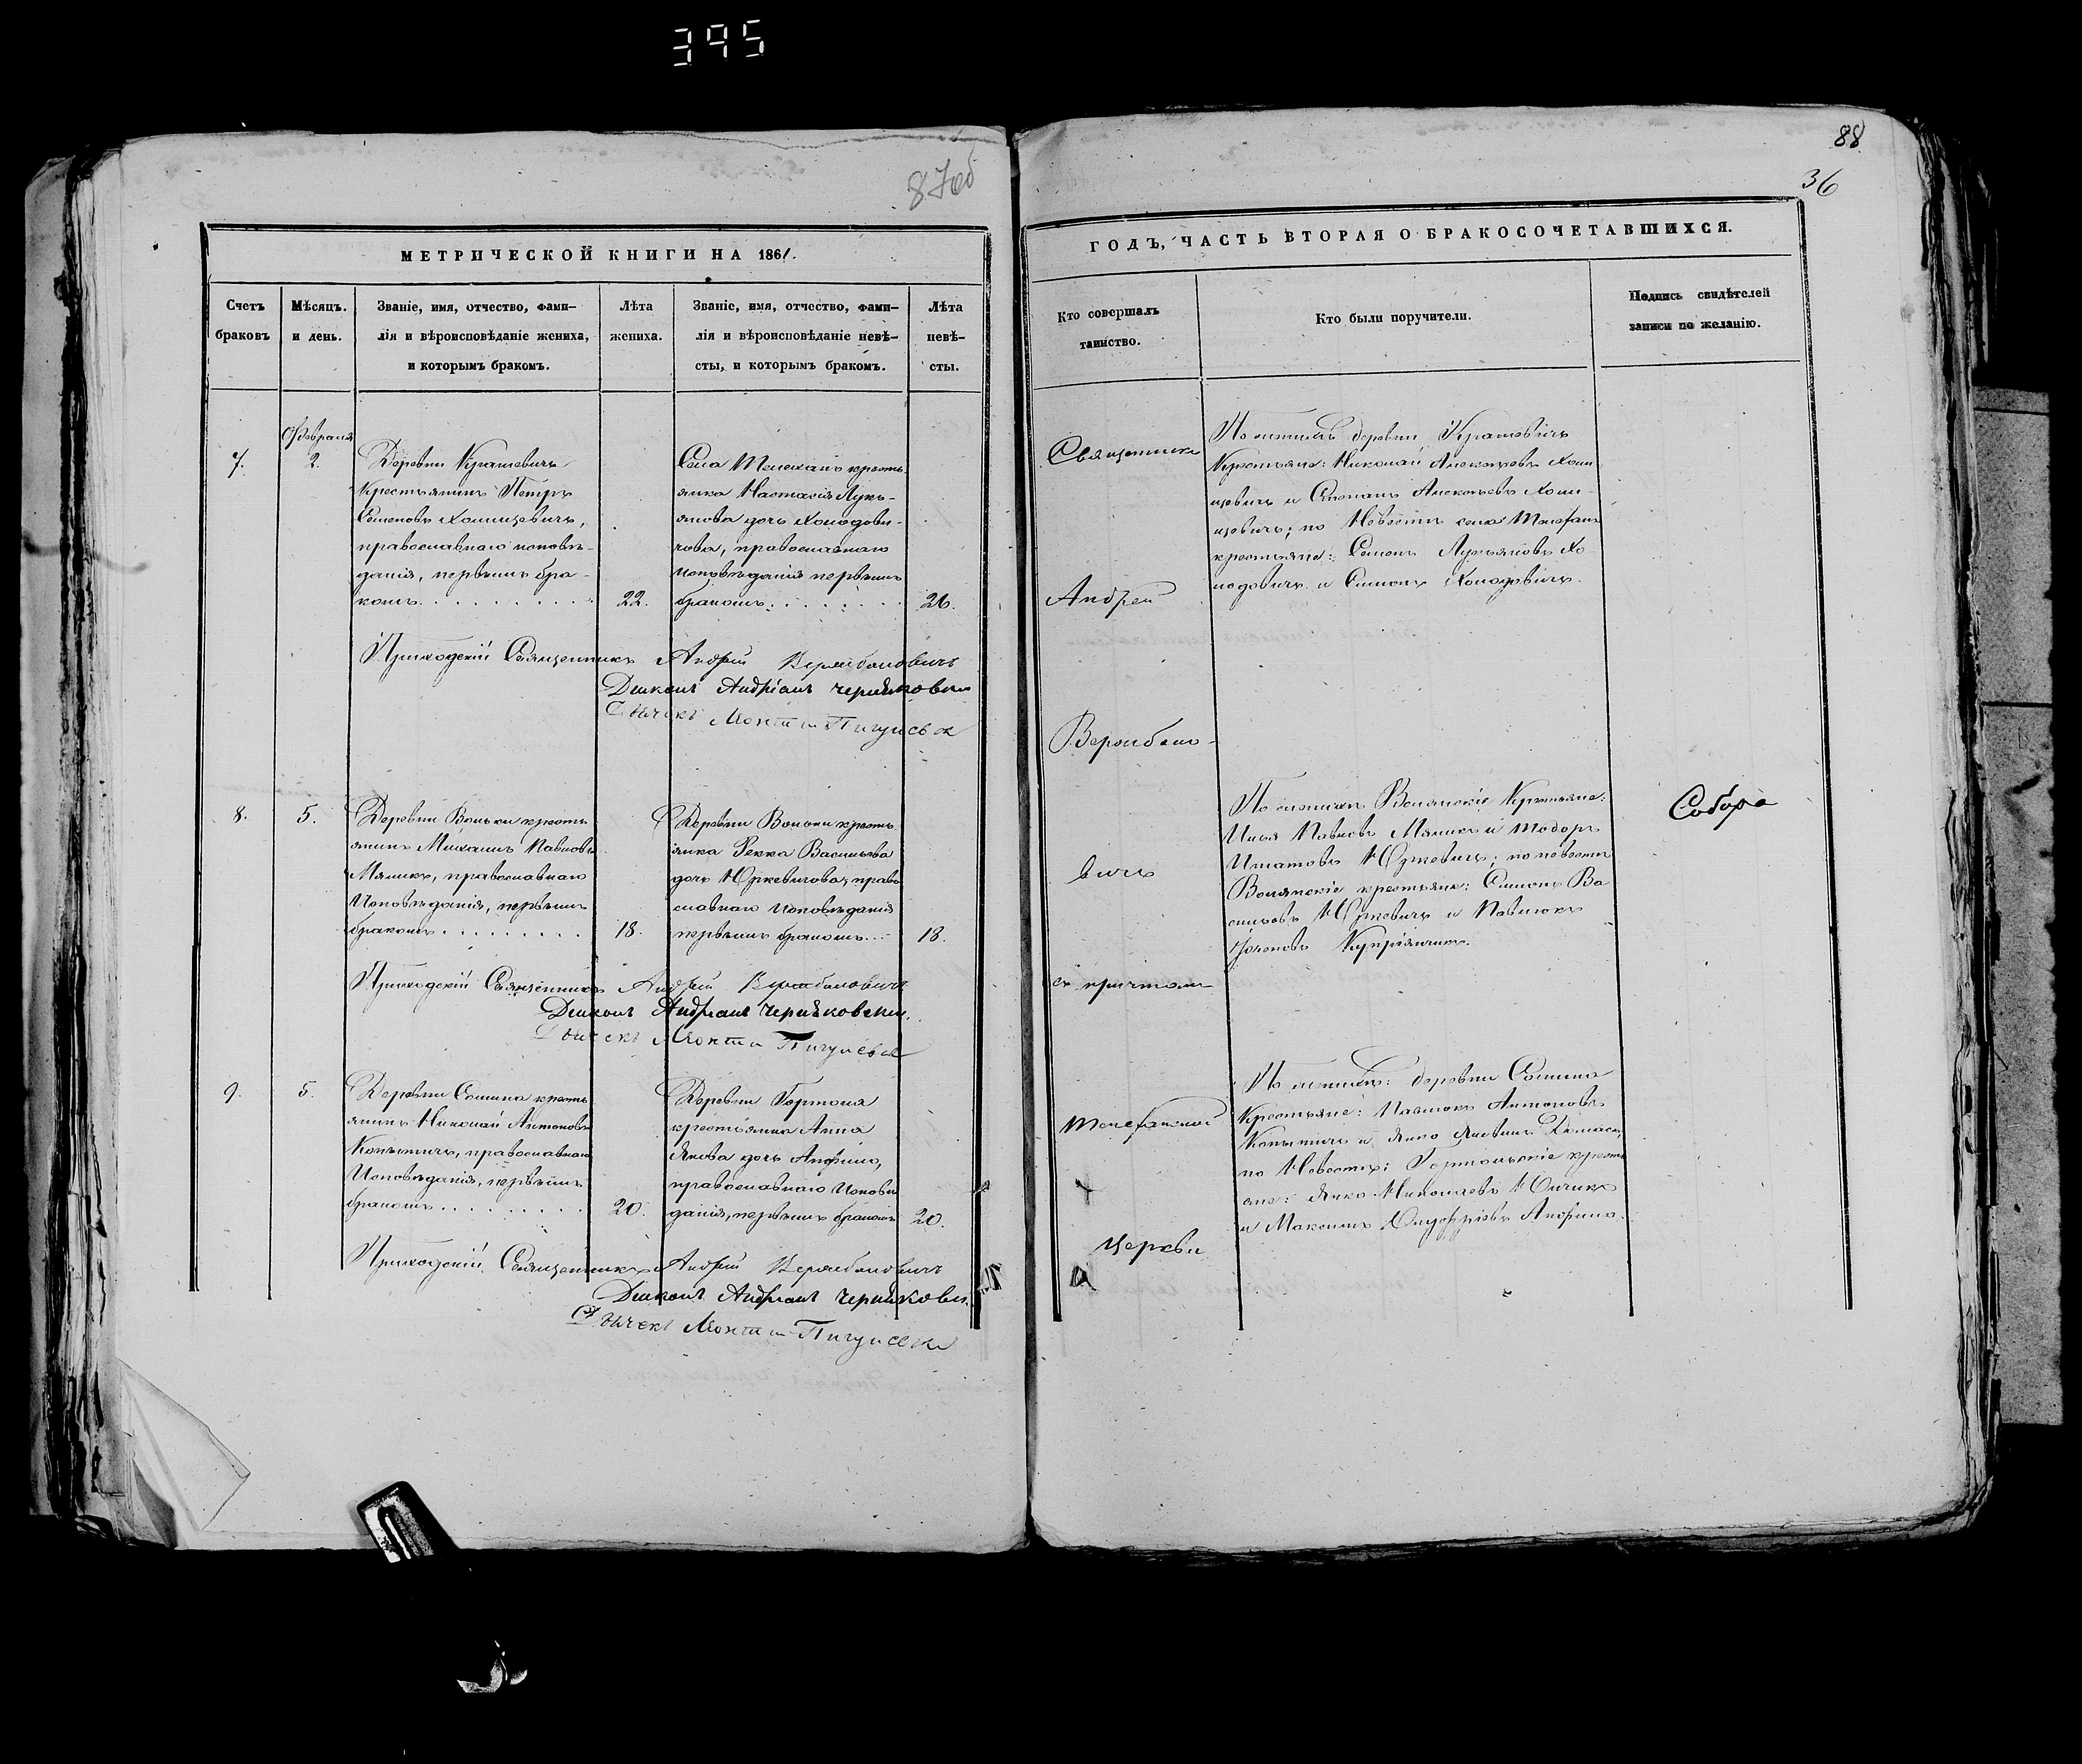 395
87об
МЕТРИЧЕСКОЙ КНИГИ НА 1861.
Счетъ браковъ
Мѣсяцъ. и день.
Званіе, имя, отчество, фами-
лія и вѣроисповѣданіе жениха,
и которымъ бракомъ.
Лѣта
жениха.
Званіе, имя, отчество, фами-
лія и вѣроисповѣданіе невѣ-
сты, и которымъ бракомъ.
Лѣта
невѣ-
сты.
Февраля
7.
2.
Деревни Крашевичъ
Крестьянинъ Петръ
Семеновъ Хомицевичъ,
православнаго исповѣ-
данія, первымъ бра-
комъ.........
22.
Села Телеханъ кресть
янка Настасія Лукъ-
янова дочь Холодови-
чова, православнаго
исповѣданія первымъ
бракомъ........
26.
Приходскій Священникъ Андрей
Диаконъ Андріанъ
8.
5.
Деревни Вольки кресть
янинъ Михаилъ Павловъ
Мяликъ, православнаго
Исповѣданія, первымъ
бракомъ.........
18.
Деревни Вольки кресть
янка Фекка Васильева
дочь Юркевичова, право
славнаго Исповѣданія
первымъ бракомъ...
18.
Приходскій Священникъ Андрей
Диаконъ Андріанъ
9.
5.
Деревни Сомина кресть
янинъ Николай Антоновъ
Копытичъ, православнаго
Исповѣданія, первымъ
бракомъ.........
20.
Деревни Гортоля
крестьянка Анна
Якова дочь
православнаго Исповѣ
данія, первымъ бракомъ
20.
Приходскій Священникъ Андрей
Диаконъ Андріанъ
88
36
ГОДЪ, ЧАСТЬ ВТОРАЯ О БРАКОСОЧЕТАВШИХСЯ.
Кто совершалъ
таинство.
Кто были поручители.
Подпись свидѣтелей
записи по желанію.
Священникъ
Андрей
вичъ
съ причтомъ
Телеханской
Церкви
По женихѣ деревни Крашевичъ
Крестьяне: Николай Алексѣевъ Хоми
цевичъ и Степанъ Алексѣевъ Хоми-
цевичъ; по Невѣстѣ села Телеханъ
крестьяне: Семенъ Лукьяновъ Хо
лодовичъ и Симонъ Холодовичъ.
По женихѣ Волянскіе Крестьяне:
Илья Павловъ Мяликъ и Тодоръ
Игнатовъ Юркевичъ; по невѣстѣ
Волянскіе крестьяне: Симонъ Ва
сильевъ Юркевичъ и Павлюкъ
Купріянчикъ.
По женихѣ: деревни Сомина
Крестьяне: Павлюкъ Антоновъ
Копытичъ и Янко
по Невѣстѣ: Гортольскіе кресть
яне: Янко Николаевъ
и Максимъ Онуфріевъ
Собора